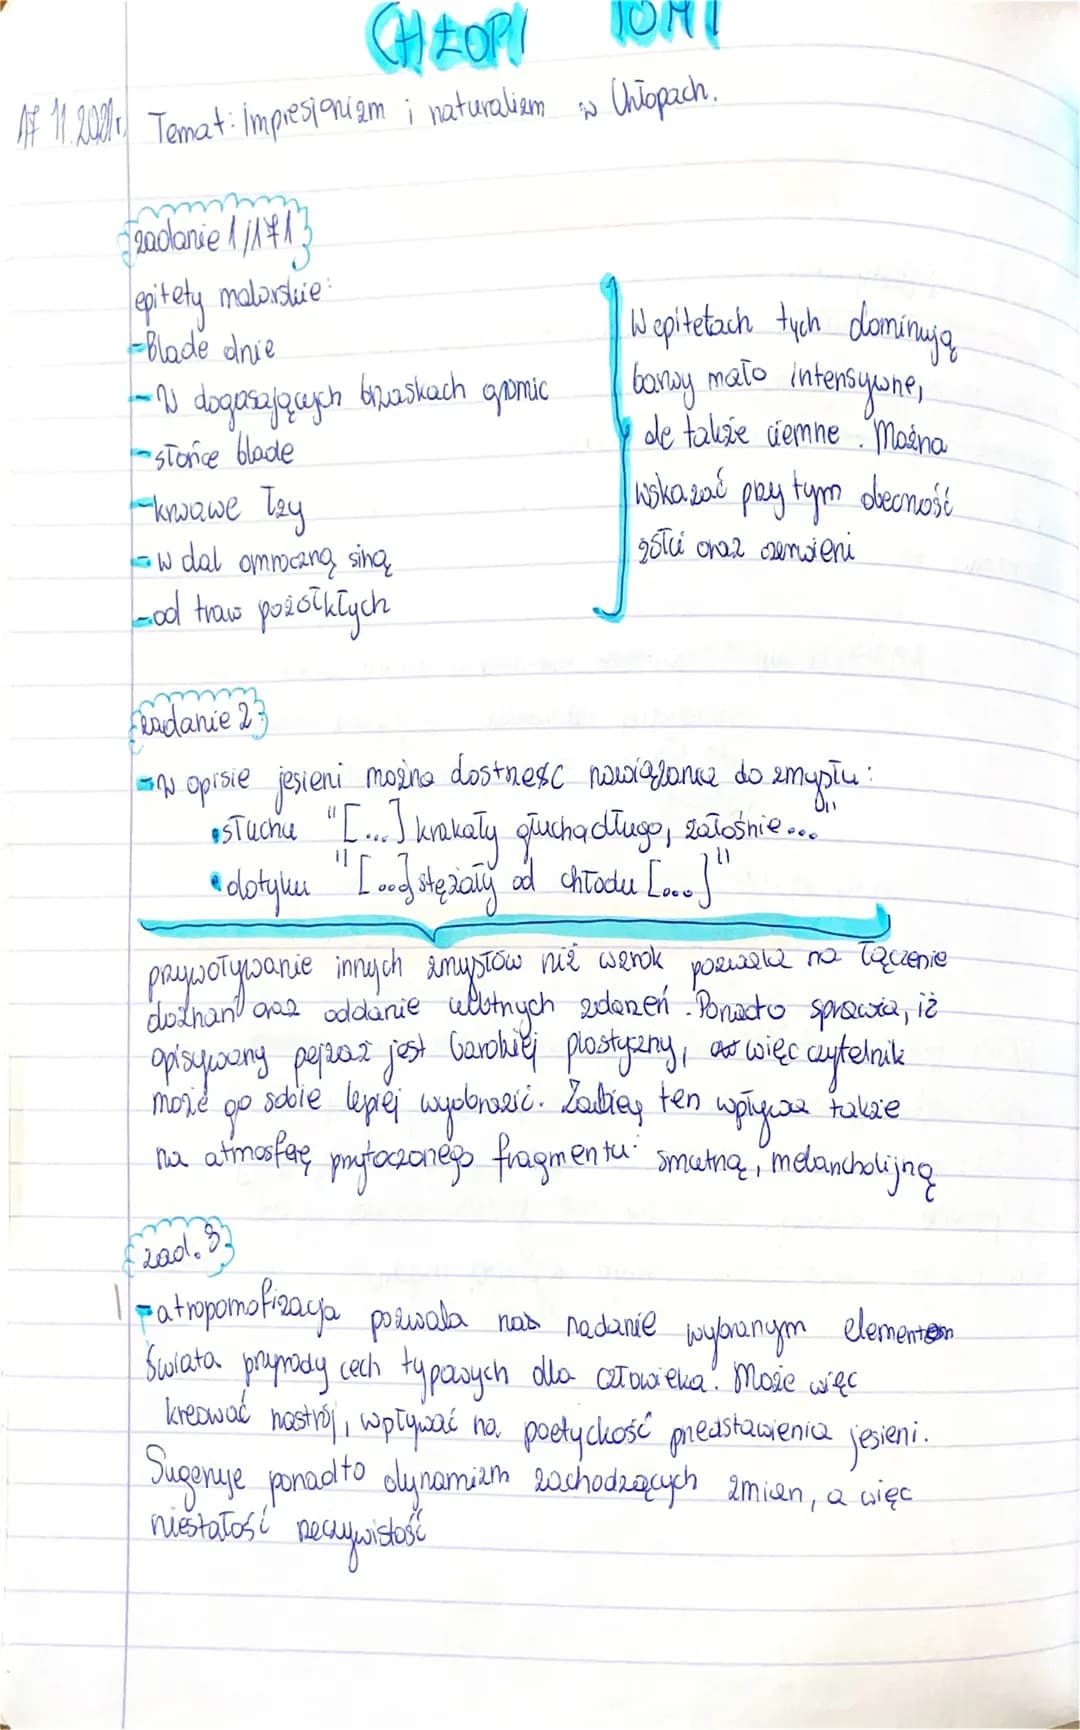 CHŁOPI TOM I
17.11.2021r. Temat: Impresjonizm i naturalizm w Chłopach.
zadanie 1/171
epitety malarskie:
-Blade dnie
-W dogasających brzaskach gromic
-słońce blade
-krwawe łzy
-w dal omroczną siną
-od traw pożółkłych
W epitetach tych dominują
barwy mało intensywne,
ale także ciemne. Można
wskazać przy tym obecność
żółci oraz czerwieni
zadanie 2
-W opisie jesieni można dostrześć nawiązanie do zmysłu:
•słuchu "[...] krakały głucho, długo, żałośnie..."
•dotyku "[...] stężały od chłodu [...]"
przywoływanie innych zmysłów niż wzrok pozwala na łączenie
doznań oraz oddanie ulotnych zdarzeń. Ponadto sprawia, iż
opisywany pejzaż jest bardziej plastyczny, a więc czytelnik
może go sobie lepiej wyobrazić. Zabieg ten wpływa także
na atmosferę przytoczonego fragmentu: smutną, melancholijną
zad. 3
-atropomofizacja pozwala nas nadanie wybranym elementom
świata przyrody cech typowych dla człowieka. Może więc
kreować nastrój, wpływać na poetyckość przedstawienia jesieni.
Sugeruje ponadto dynamizm zachodzących zmian, a więc
niestałość rzeczywistość